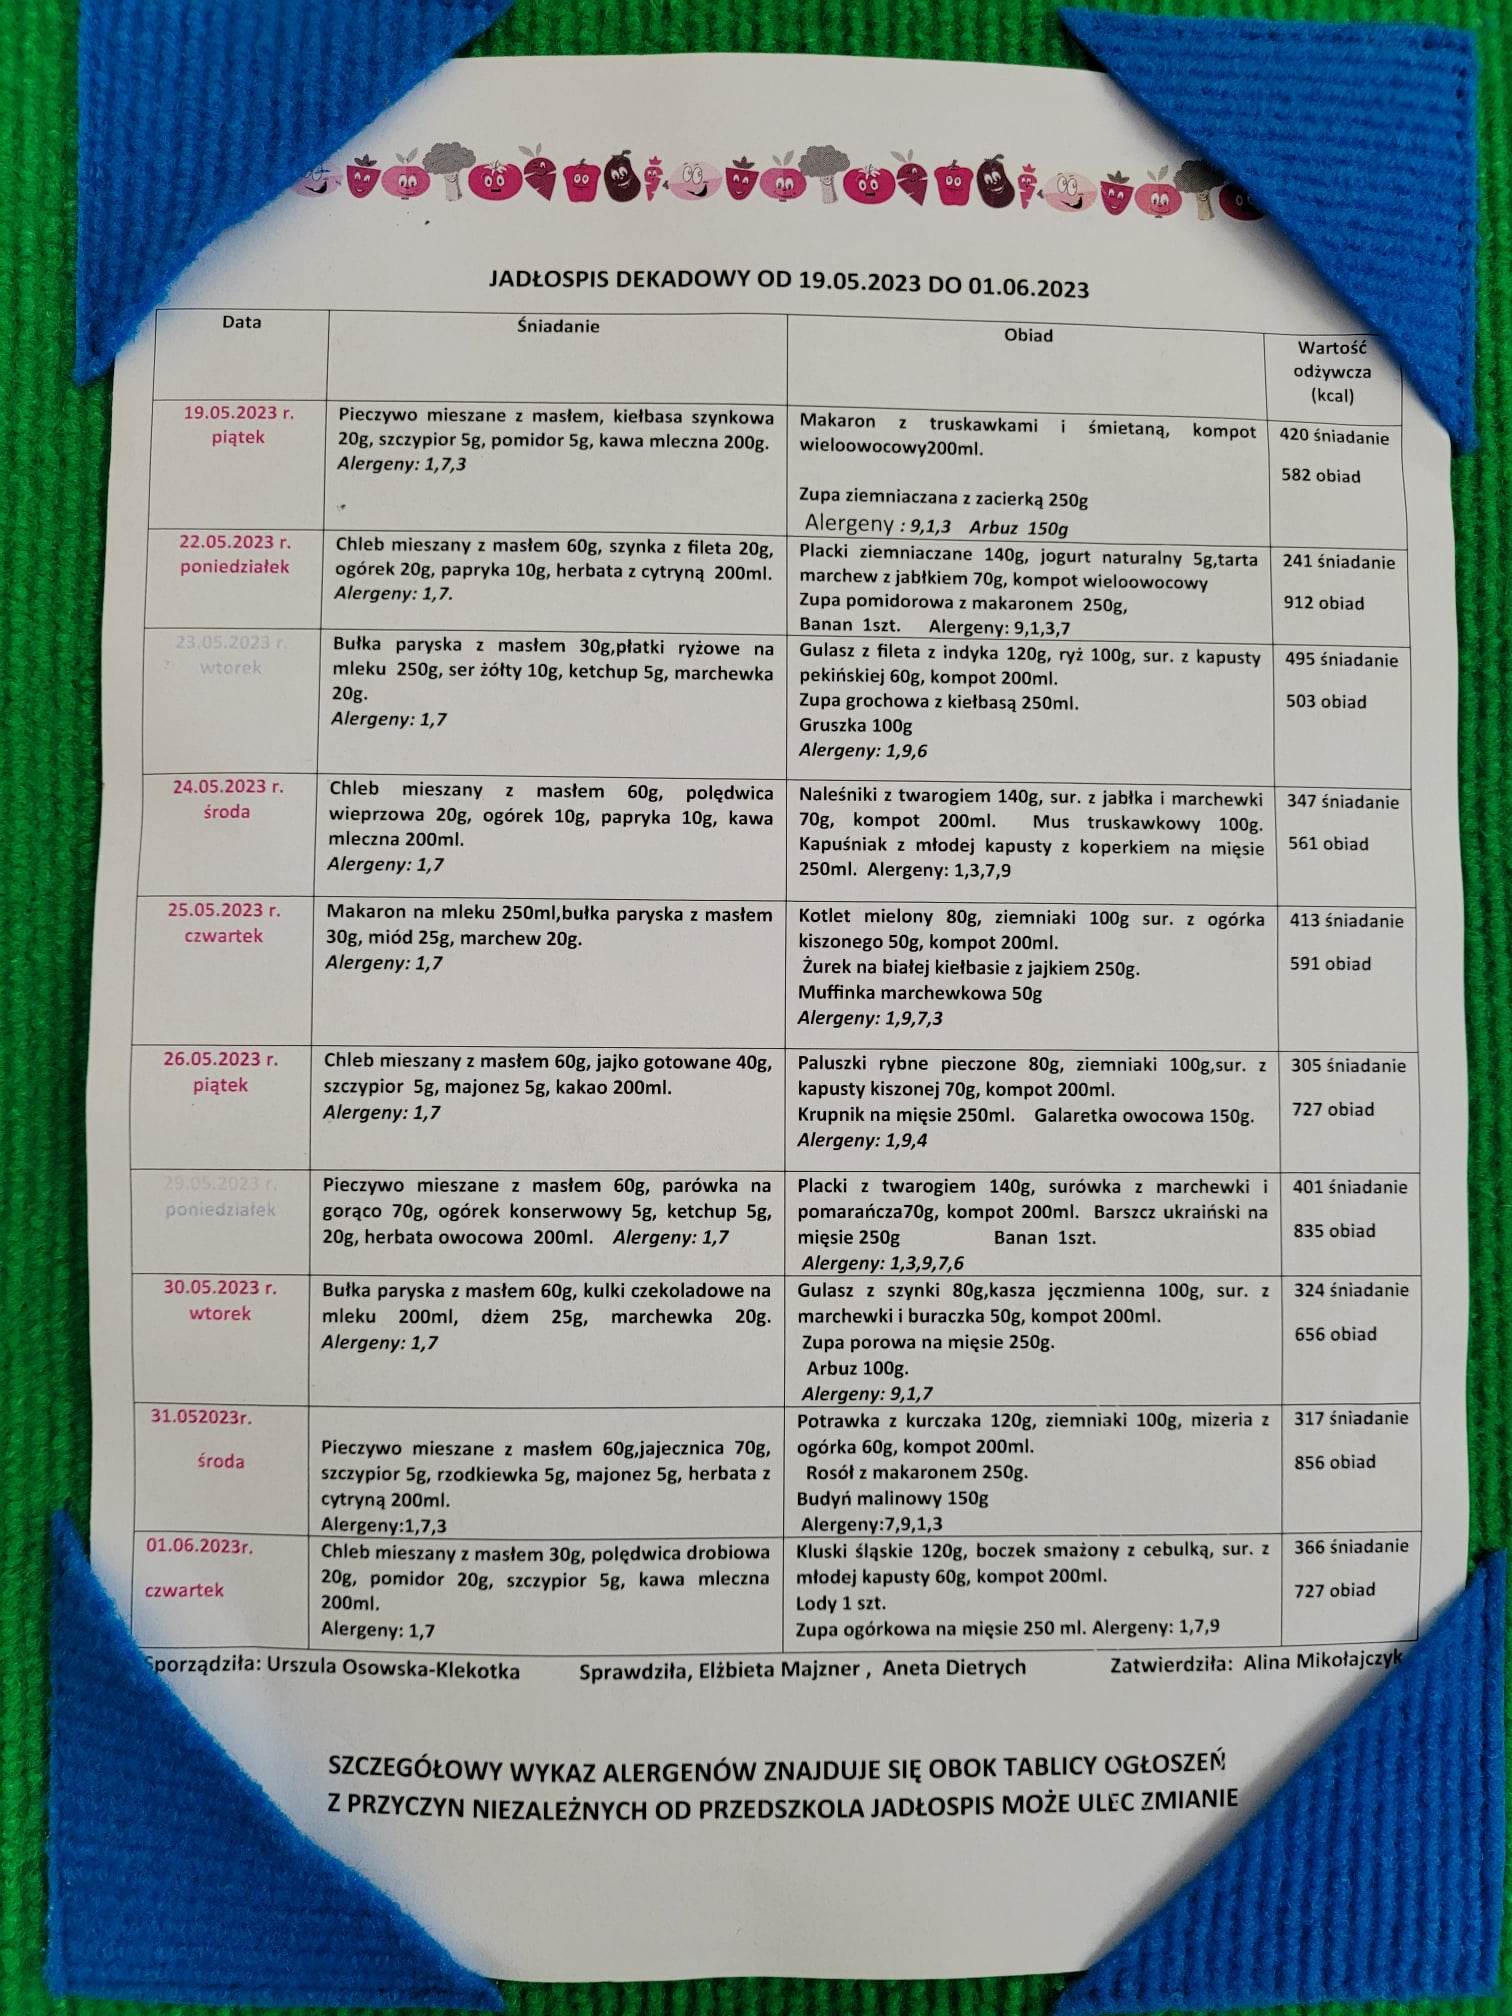 JADŁOSPIS DEKADOWY OD 19.05.2023 DO 01.06.2023
Data
Śniadanie
Obiad
Wartość
odżywcza
(kcal)
19.05.2023 r.
piątek
Pieczywo mieszane z masłem, kiełbasa szynkowa
20g, szczypior 5g, pomidor 5g, kawa mleczna 200g.
Alergeny: 1,7,3
Makaron z truskawkami i śmietaną, kompot
wieloowocowy200ml.
Zupa ziemniaczana z zacierką 250g
Alergeny : 9,1,3 Arbuz 150g
420 śniadanie
582 obiad
22.05.2023 r.
poniedziałek
Chleb mieszany z masłem 60g, szynka z fileta 20g,
ogórek 20g, papryka 10g, herbata z cytryną 200ml.
Alergeny: 1,7.
Placki ziemniaczane 140g, jogurt naturalny 5g,tarta
marchew z jabłkiem 70g, kompot wieloowocowy
Zupa pomidorowa z makaronem 250g,
Banan 1szt. Alergeny: 9,1,3,7
241 śniadanie
912 obiad
23.05.2023 r.
wtorek
Bułka paryska z masłem 30g,płatki ryżowe na
mleku 250g, ser żółty 10g, ketchup 5g, marchewka
20g.
Alergeny: 1,7
Gulasz z fileta z indyka 120g, ryż 100g, sur. z kapusty
pekińskiej 60g, kompot 200ml.
Zupa grochowa z kiełbasą 250ml.
Gruszka 100g
Alergeny: 1,9,6
495 śniadanie
503 obiad
24.05.2023 r.
środa
Chleb mieszany z masłem 60g, polędwica
wieprzowa 20g, ogórek 10g, papryka 10g, kawa
mleczna 200ml.
Alergeny: 1,7
Naleśniki z twarogiem 140g, sur. z jabłka i marchewki
70g, kompot 200ml. Mus truskawkowy 100g.
Kapuśniak z młodej kapusty z koperkiem na mięsie
250ml. Alergeny: 1,3,7,9
347 śniadanie
561 obiad
25.05.2023 r.
czwartek
Makaron na mleku 250ml,bułka paryska z masłem
30g, miód 25g, marchew 20g.
Alergeny: 1,7
Kotlet mielony 80g, ziemniaki 100g sur. z ogórka
kiszonego 50g, kompot 200ml.
Żurek na białej kiełbasie z jajkiem 250g.
Muffinka marchewkowa 50g
Alergeny: 1,9,7,3
413 śniadanie
591 obiad
26.05.2023 r.
piątek
Chleb mieszany z masłem 60g, jajko gotowane 40g,
szczypior 5g, majonez 5g, kakao 200ml.
Alergeny: 1,7
Paluszki rybne pieczone 80g, ziemniaki 100g,sur. z
kapusty kiszonej 70g, kompot 200ml.
Krupnik na mięsie 250ml. Galaretka owocowa 150g.
Alergeny: 1,9,4
305 śniadanie
727 obiad
29.05.2023 r.
poniedziałek
Pieczywo mieszane z masłem 60g, parówka na
gorąco 70g, ogórek konserwowy 5g, ketchup 5g,
20g, herbata owocowa 200ml. Alergeny: 1,7
Placki z twarogiem 140g, surówka z marchewki i
pomarańcza70g, kompot 200ml. Barszcz ukraiński na
mięsie 250g Banan 1szt.
Alergeny: 1,3,9,7,6
401 śniadanie
835 obiad
30.05.2023 r.
wtorek
Bułka paryska z masłem 60g, kulki czekoladowe na
mleku 200ml, dżem 25g, marchewka 20g.
Alergeny: 1,7
Gulasz z szynki 80g,kasza jęczmienna 100g, sur. z
marchewki i buraczka 50g, kompot 200ml.
Zupa porowa na mięsie 250g.
Arbuz 100g.
Alergeny: 9,1,7
324 śniadanie
656 obiad
31.052023r.
środa
Pieczywo mieszane z masłem 60g,jajecznica 70g,
szczypior 5g, rzodkiewka 5g, majonez 5g, herbata z
cytryną 200ml.
Alergeny:1,7,3
Potrawka z kurczaka 120g, ziemniaki 100g, mizeria z
ogórka 60g, kompot 200ml.
Rosół z makaronem 250g.
Budyń malinowy 150g
Alergeny:7,9,1,3
317 śniadanie
856 obiad
01.06.2023r.
czwartek
Chleb mieszany z masłem 30g, polędwica drobiowa
20g, pomidor 20g, szczypior 5g, kawa mleczna
200ml.
Alergeny: 1,7
Kluski śląskie 120g, boczek smażony z cebulką, sur. z
młodej kapusty 60g, kompot 200ml.
Lody 1 szt.
Zupa ogórkowa na mięsie 250 ml. Alergeny: 1,7,9
366 śniadanie
727 obiad
Sporządziła: Urszula Osowska-Klekotka Sprawdziła, Elżbieta Majzner , Aneta Dietrych Zatwierdziła: Alina Mikołajczyk
SZCZEGÓŁOWY WYKAZ ALERGENÓW ZNAJDUJE SIĘ OBOK TABLICY OGŁOSZEŃ
Z PRZYCZYN NIEZALEŻNYCH OD PRZEDSZKOLA JADŁOSPIS MOŻE ULEC ZMIANIE